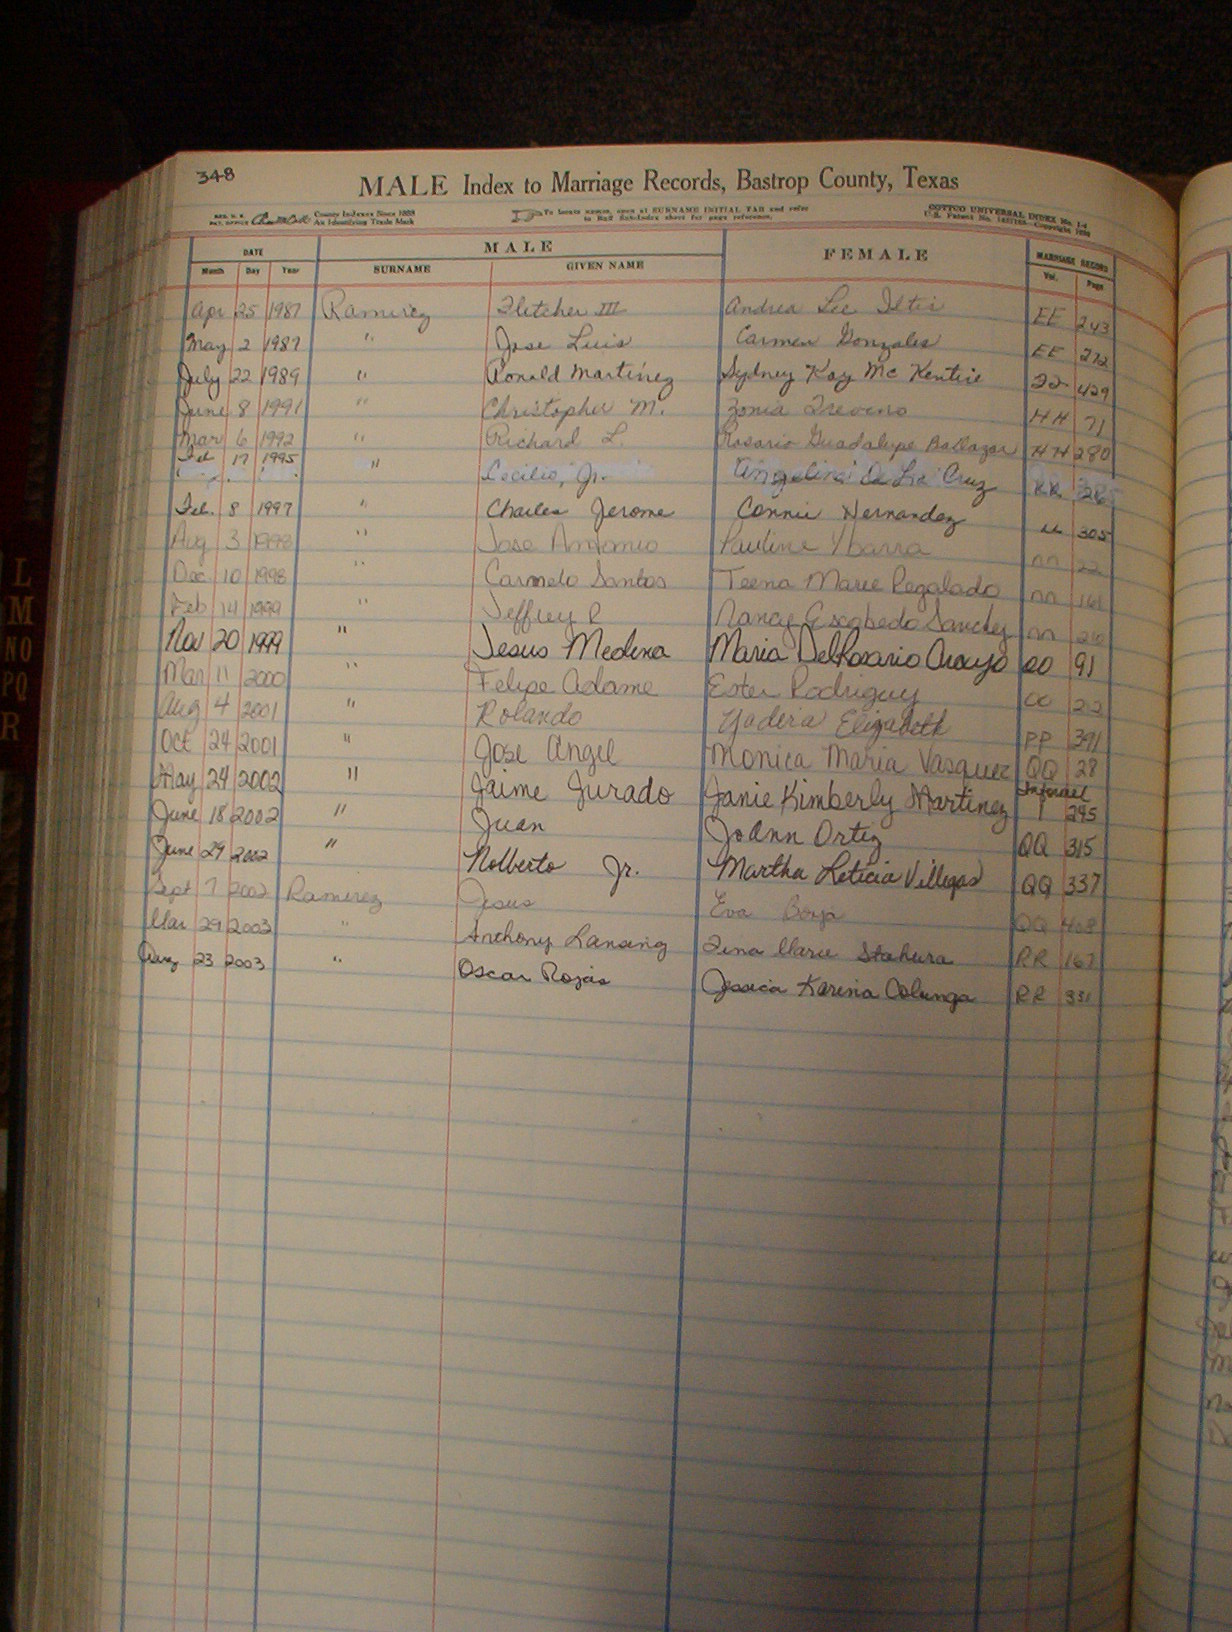 348
MALE Index to Marriage Records, Bastrop County, Texas
County Indexes Since 1888
An Identifying Trade Mark
To locate names, open at SURNAME INITIAL TAB and refer
COTTCO UNIVERSAL INDEX No. 1-a
DATE MALE FEMALE MARRIAGE RECORD
Month Day Year SURNAME GIVEN NAME Vol. Page
Apr 25 1987 Ramirez Fletcher III Andrea Lee EE 243
May 2 1987 " Jose Luis Carmen Gonzales EE 272
July 22 1989 " Ronald Martinez Sydney Kay Mc Kentie 429
June 8 1991 " Christopher M. Zonia Trevino HH 71
Mar 6 1992 " Richard L. Rosario Guadalupe Baltazar HH 280
Feb 17 1995 " Cecilio, Jr. Angelina De La Cruz
Feb. 8 1997 " Charles Jerome Connie Hernandez 305
Aug 3 1998 " Jose Antonio Pauline Ybarra nn 22
Dec 10 1998 " Carmelo Santos Teena Marie Regalado nn 161
Feb 14 1999 " Jeffrey P Nancy Escobedo Sanchez nn
Nov 20 1999 " Jesus Medina Maria DelRosario Araujo OO 91
Mar 11 2000 " Felipe Adame Ester Rodriguez OO
Aug 4 2001 " Rolando Yadira Elizabeth PP 391
Oct 24 2001 " Jose Angel Monica Maria Vasquez QQ 28
May 24 2002 " Jaime Jurado Janie Kimberly Martinez Informal 1 295
June 18 2002 " Juan JoAnn Ortiz QQ 315
June 29 2002 " Nolberto Jr. Martha Leticia Villegas QQ 337
Sept 7 2002 Ramirez Jesus Eva Borja QQ 408
Mar 29 2003 " Anthony Lansing Tina Marie Stahura RR 167
Aug 23 2003 " Oscar Rojas Jessica Karina Colunga RR 331
L
M
NO
PQ
R